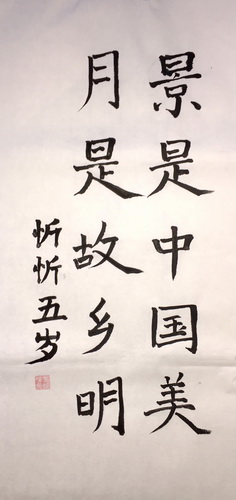 景是中国美
月是故乡明
忻忻五岁